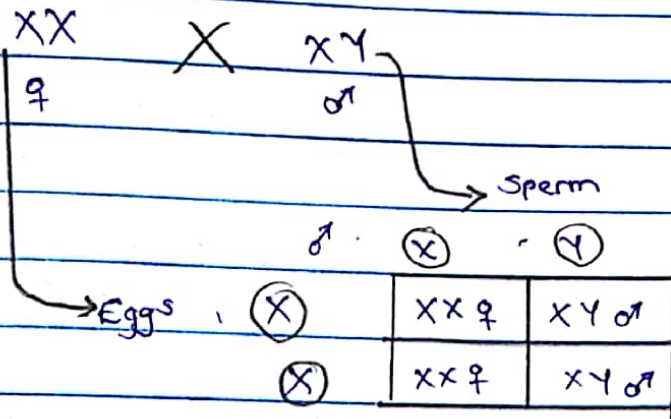 XX X XY
♀ ♂
Sperm
♂ X Y
Eggs X XX♀ XY♂
X XX♀ XY♂